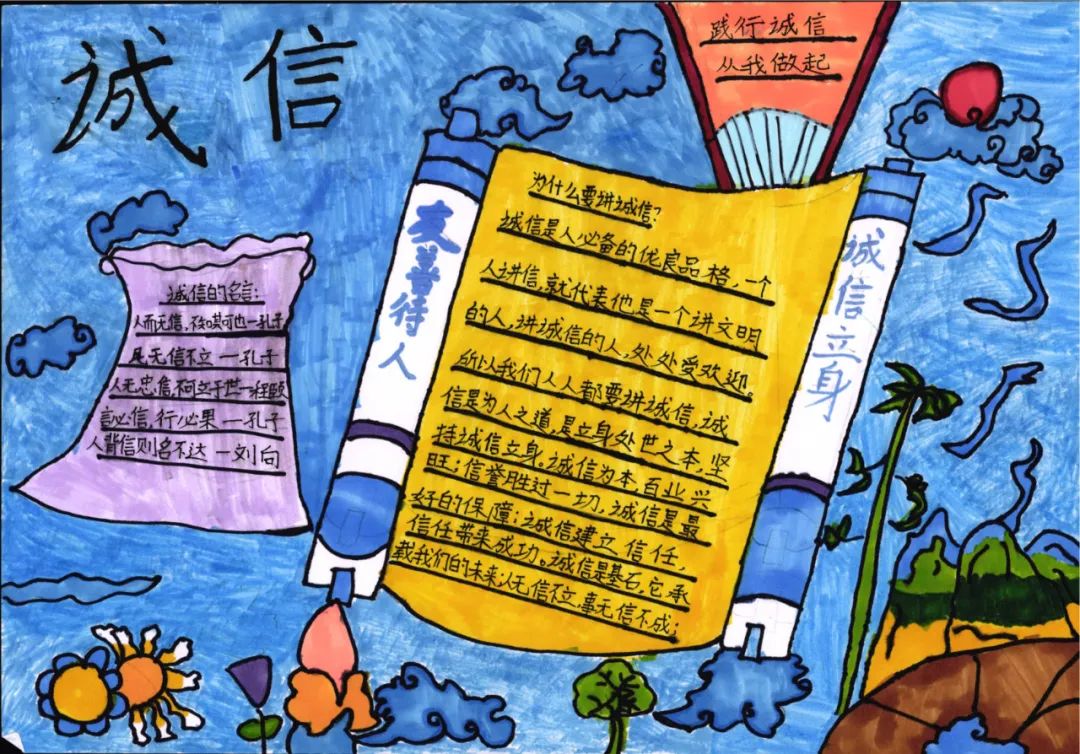 诚信
践行诚信
从我做起
诚信的名言:
人而无信,不知其可也—孔子
民无信不立—孔子
人无忠信,不可立于世—程颐
言必信,行必果—孔子
人背信则名不达—刘向
友善待人
为什么要讲诚信?
诚信是人必备的优良品格,一个
人讲信,就代表他是一个讲文明
的人,讲诚信的人,处处受欢迎。
所以我们人人都要讲诚信,诚
信是为人之道,是立身处世之本,坚
持诚信立身。诚信为本百业兴
旺;信誉胜过一切,诚信是最
好的保障;诚信建立信任,
信任带来成功。诚信是基石,它承
载我们的未来;人无信不立事无信不成;
诚信立身